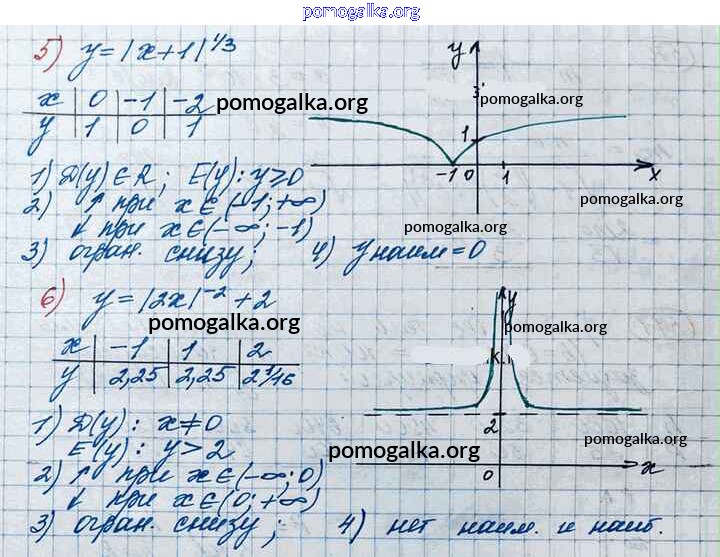 pomogalka.org
5) y = |x+1|^1/3
x | 0 | -1 | -2
y | 1 | 0 | 1
pomogalka.org
y
3
pomogalka.org
1
-1 0 1 x
1) D(y) ∈ R; E(y): y ≥ 0
pomogalka.org
2) ↑ при x ∈ (-1; +∞)
↓ при x ∈ (-∞; -1)
pomogalka.org
3) огран. снизу; 4) y наим = 0
6) y = |2x|^-2 + 2
pomogalka.org
x | -1 | 1 | 2
y | 2,25 | 2,25 | 2 1/16
y
pomogalka.org
2
0 x
1) D(y): x ≠ 0
E(y): y > 2
pomogalka.org
pomogalka.org
2) ↑ при x ∈ (-∞; 0)
↓ при x ∈ (0; +∞)
3) огран. снизу; 4) нет наим. и наиб.